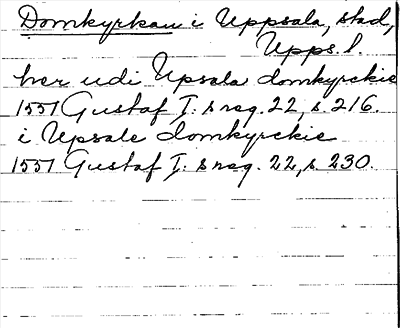 Domkyrkan i Uppsala, stad,
Upps. l.
her udi Upsala domkyrckie
1551 Gustaf I: s reg. 22, s. 216.
i Upsale domkyrckie
1551 Gustaf I: s reg. 22, s. 230.